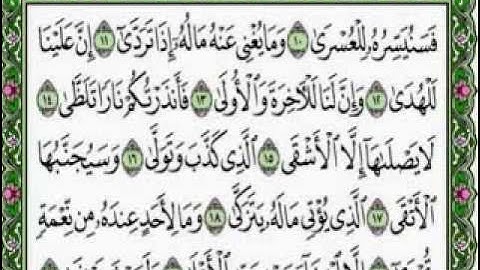 فَسَنُيَسِّرُهُۥ لِلْعُسْرَىٰ ١٠ وَمَا يُغْنِى عَنْهُ مَالُهُۥٓ إِذَا تَرَدَّىٰٓ ١١ إِنَّ عَلَيْنَا
لَلْهُدَىٰ ١٢ وَإِنَّ لَنَا لَلْـَٔاخِرَةَ وَٱلْأُولَىٰ ١٣ فَأَنذَرْتُكُمْ نَارًا تَلَظَّىٰ ١٤
لَا يَصْلَىٰهَآ إِلَّا ٱلْأَشْقَى ١٥ ٱلَّذِى كَذَّبَ وَتَوَلَّىٰ ١٦ وَسَيُجَنَّبُهَا
ٱلْأَتْقَى ١٧ ٱلَّذِى يُؤْتِى مَالَهُۥ يَتَزَكَّىٰ ١٨ وَمَا لِأَحَدٍ عِندَهُۥ مِن نِّعْمَةٍ